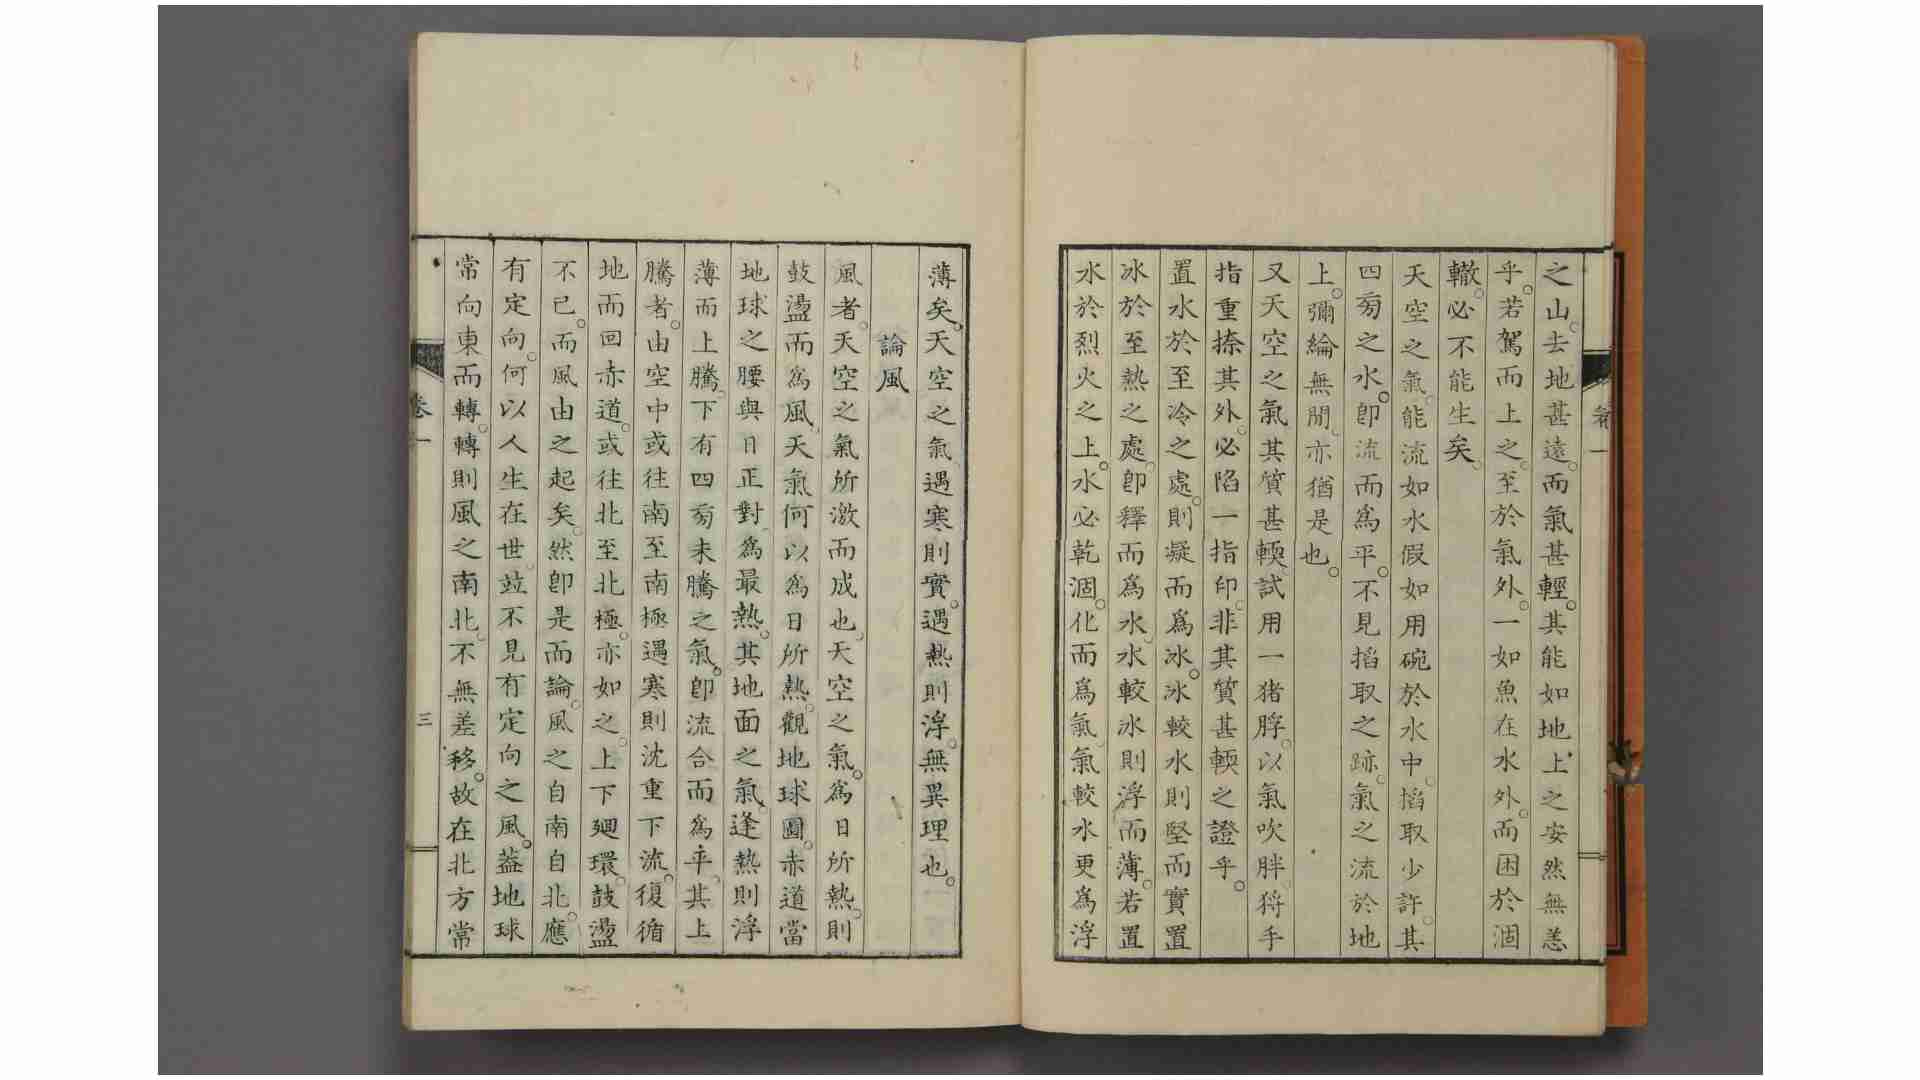 卷一
之山。去地甚遠。而氣甚輕。其能如地上之安然無恙
乎。若駕而上之。至於氣外。一如魚在水外。而困於涸
轍。必不能生矣。
天空之氣。能流如水假如用碗於水中。掐取少許。其
四旁之水。卽流而爲平。不見掐取之跡。氣之流於地
上。彌綸無間。亦猶是也。
又天空之氣其質甚輭試用一猪脬。以氣吹胖。將手
指重捺其外。必陷一指印。非其質甚輭之證乎。
置水於至冷之處。則凝而爲冰。冰較水則堅而實置
冰於至熱之處。卽釋而爲水。水較冰則浮而薄。若置
水於烈火之上。水必乾涸。化而爲氣。氣較水更爲浮
薄矣。天空之氣遇寒則實。遇熱則浮。無異理也。
論風
風者。天空之氣所激而成也。天空之氣。爲日所熱。則
鼓盪而爲風。天氣何以爲日所熱。觀地球圖。赤道當
地球之腰與日正對。爲最熱。其地面之氣。逢熱則浮
薄而上騰。下有四旁未騰之氣。卽流合而爲平。其上
騰者。由空中或往南至南極遇寒則沈重下流。復循
地而回赤道。或往北至北極。亦如之。上下廻環。鼓盪
不已。而風由之起矣。然卽是而論。風之自南自北。應
有定向。何以人生在世。竝不見有定向之風。葢地球
常向東而轉。轉則風之南北。不無差移。故在北方常
卷一
三